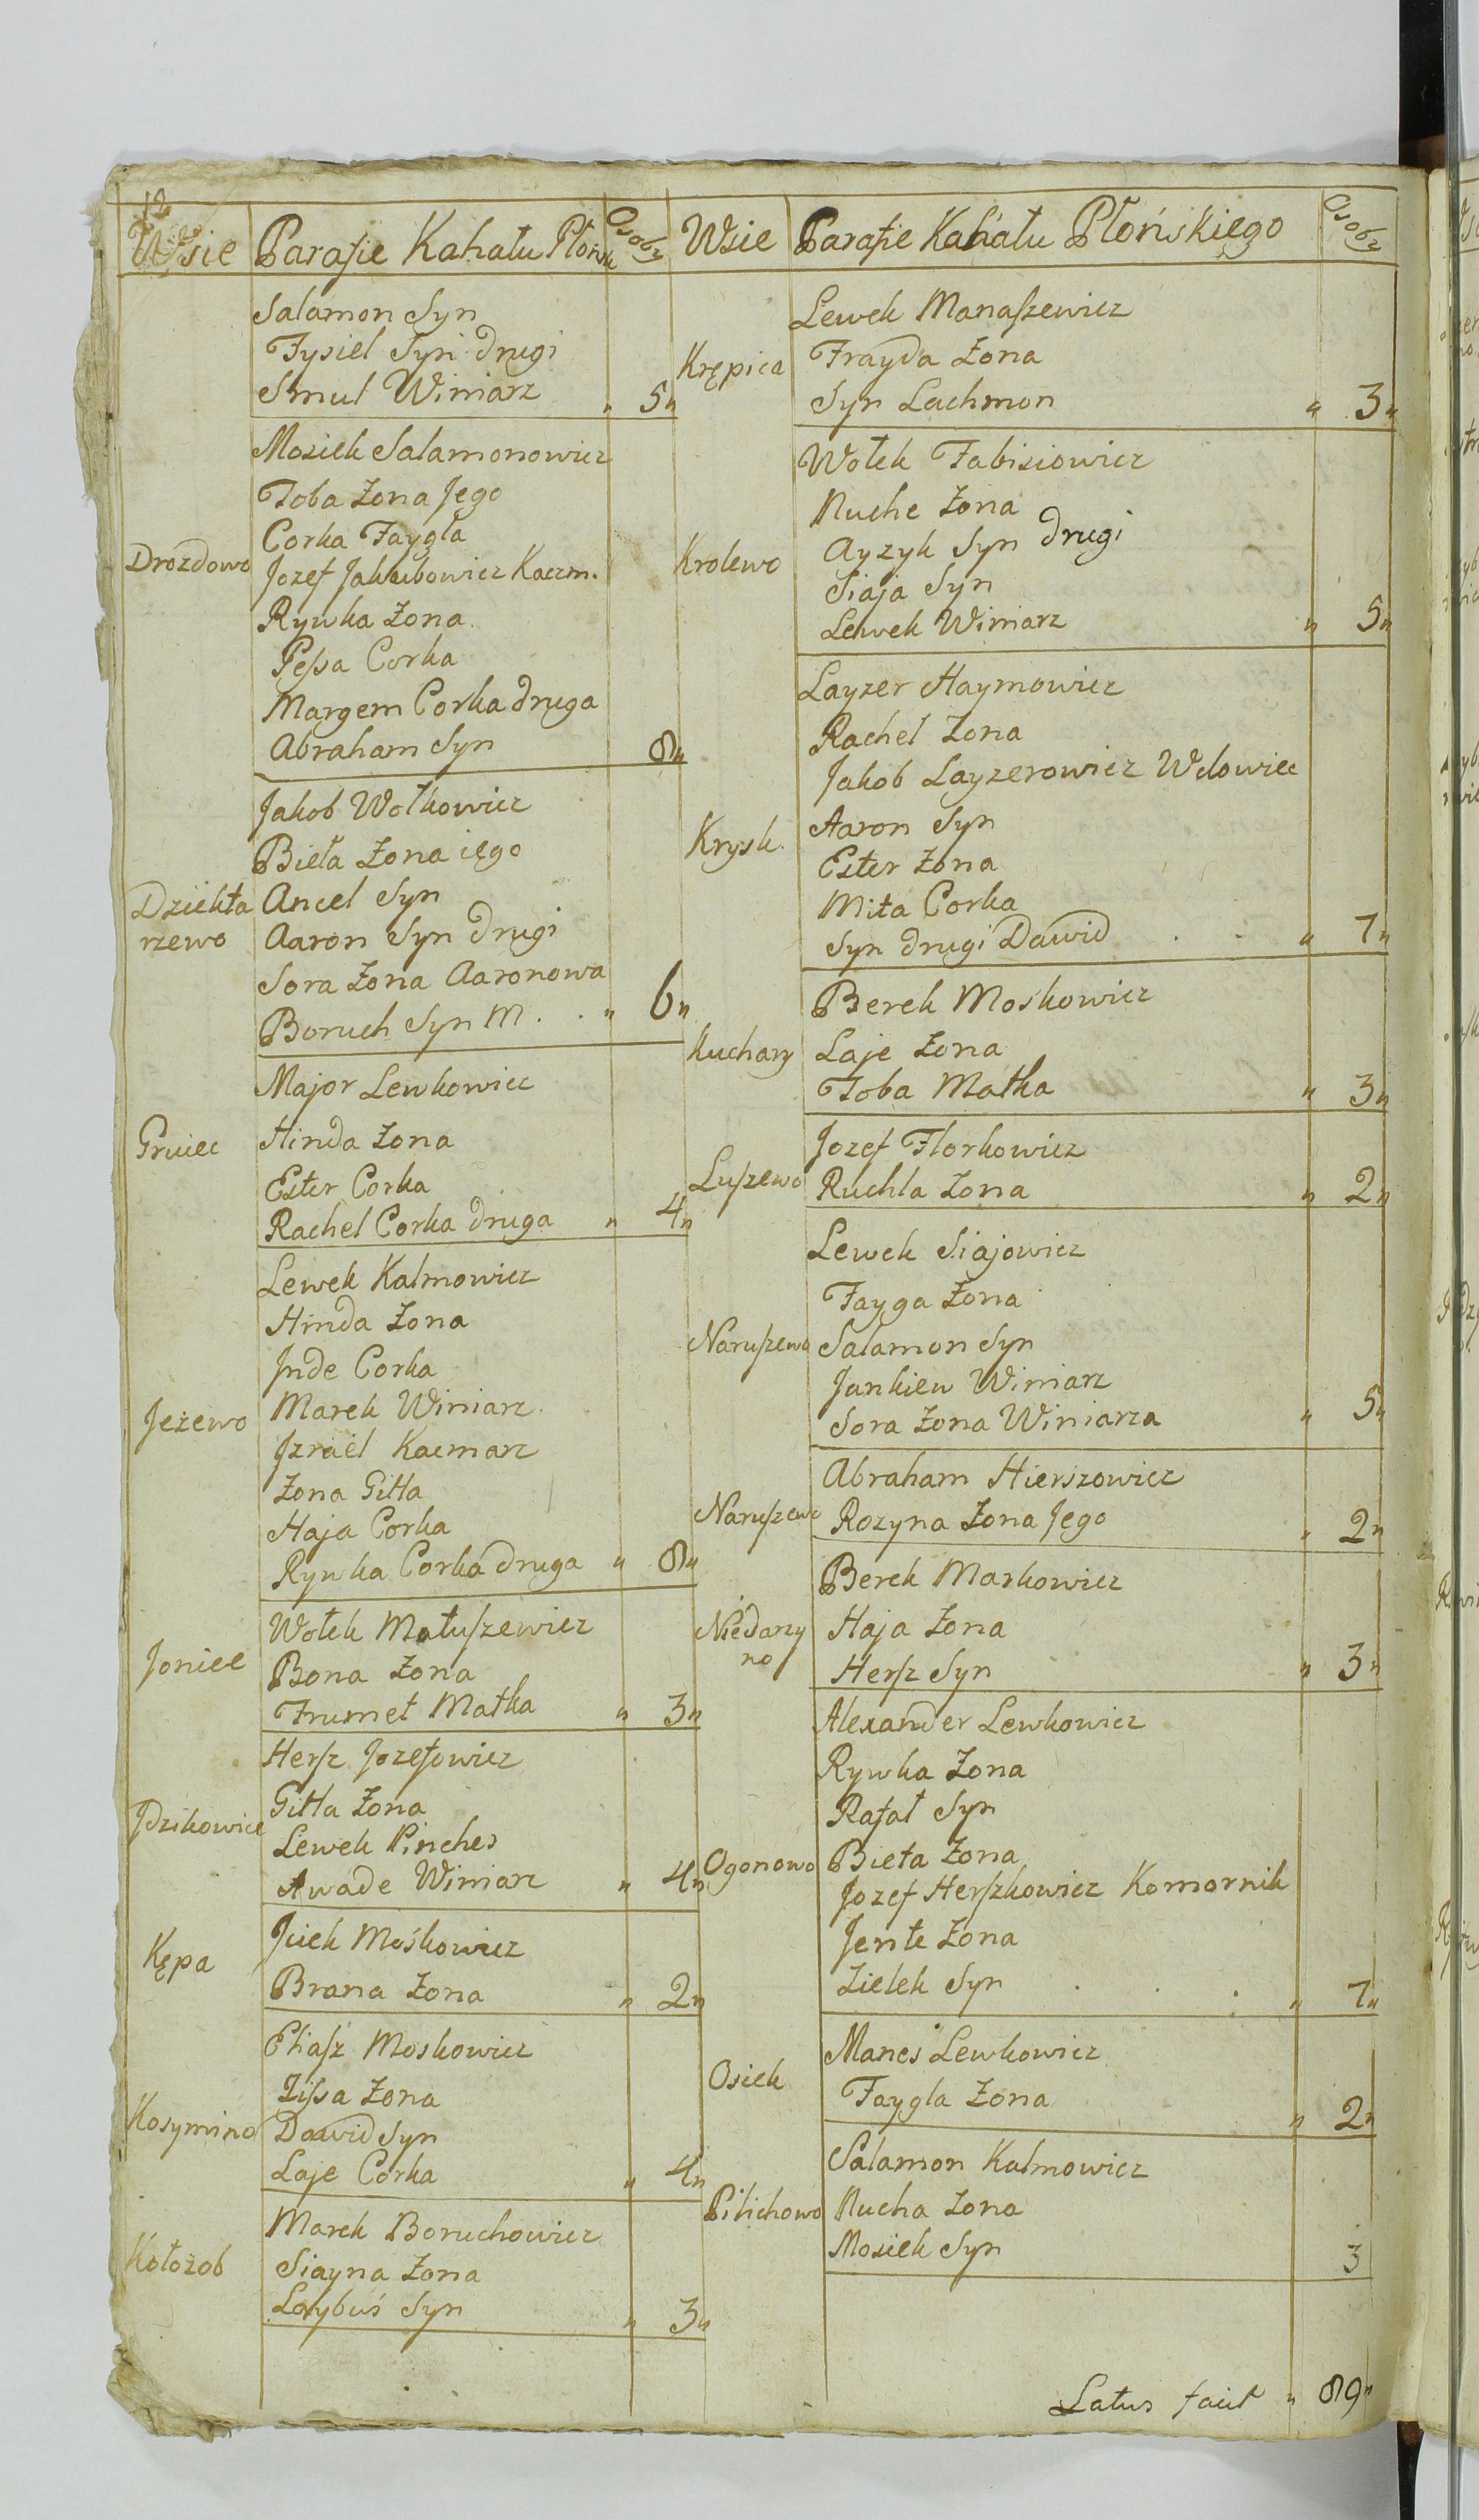 12
Wsie Parafie Kahału Płońsk Osoby
Salamon Syn
Fysiel Syn drugi
Smul Winiarz „ 5„
Mosiek Salamonowicz
Toba Zona Jego
Corka Faygla
Drozdowo
Jozef Jakubowicz Kaczm.
Rywka Zona
Peſsa Corka
Margem Corka druga
Abraham Syn 8„
Jakob Wolkowicz
Bieła Zona iego
Dziekta
rzewo
Ancel Syn
Aaron Syn drugi
Sora Zona Aaronowa
Boruch Syn M. . „ 6„
Major Lewkowicz
Gruiec
Hinda Zona
Ester Corka
Rachel Corka druga „ 4„
Lewek Kalmowicz
Hinda Zona
Jnde Corka
Jeżewo
Marek Winiarz
Jzraël Kacmarz
Zona Gitta
Haja Corka
Rywka Corka druga „ 8„
Wołek Matuſzewicz
Joniec
Bona Zona
Frumet Matka „ 3„
Herſz Jozefowicz
Gitta Zona
Jdzikowice
Lewek Pinches
Awade Winiarz „ 4„
Kępa
Jcek Mośkowicz
Brana Zona „ 2„
Eliaſz Moskowicz
Ziſsa Zona
Kosymino
Dawid Syn
Laje Corka „ 4„
Marek Boruchowicz
Kołozob
Siayna Zona
Laybuś Syn „ 3„
Wsie Parafie Kahału Płońskiego Osoby
Lewek Manaſzewicz
Krępica
Frayda Zona
Syn Lachmon „ 3„
Wołek Fabisiowicz
Nuche Zona
Krolewo
Ayzyk Syn drugi
Siaja Syn
Lewek Winiarz „ 5„
Layzer Haymowicz
Rachel Zona
Jakob Layzerowicz Wdowiec
Krysk
Aaron Syn
Ester Zona
Mita Corka
Syn drugi Dawid . . „ 7„
Berek Moskowicz
Kuchary
Laje Zona
Toba Matka „ 3„
Jozef Florkowicz
Luſzewo
Ruchla Zona „ 2„
Lewek Siajowicz
Fayga Zona
Naruſzewo
Salamon Syn
Jankiew Winiarz
Sora Zona Winiarza „ 5„
Abraham Hierszowicz
Naruſzewo
Rozyna Zona Jego „ 2„
Berek Markowicz
Niedarzy
no
Haja Zona
Herſz Syn „ 3„
Alexander Lewkowicz
Rywka Zona
Rafał Syn
Ogonowo
Bieta Zona
Jozef Herſzkowicz Komornik
Jente Zona
Zielek Syn . . . „ 7„
Manes Lewkowicz
Osiek
Faygla Zona „ 2„
Salamon Kalmowicz
Pilichowo
Nucha Zona
Mosiek Syn 3
Latus facit „ 89„